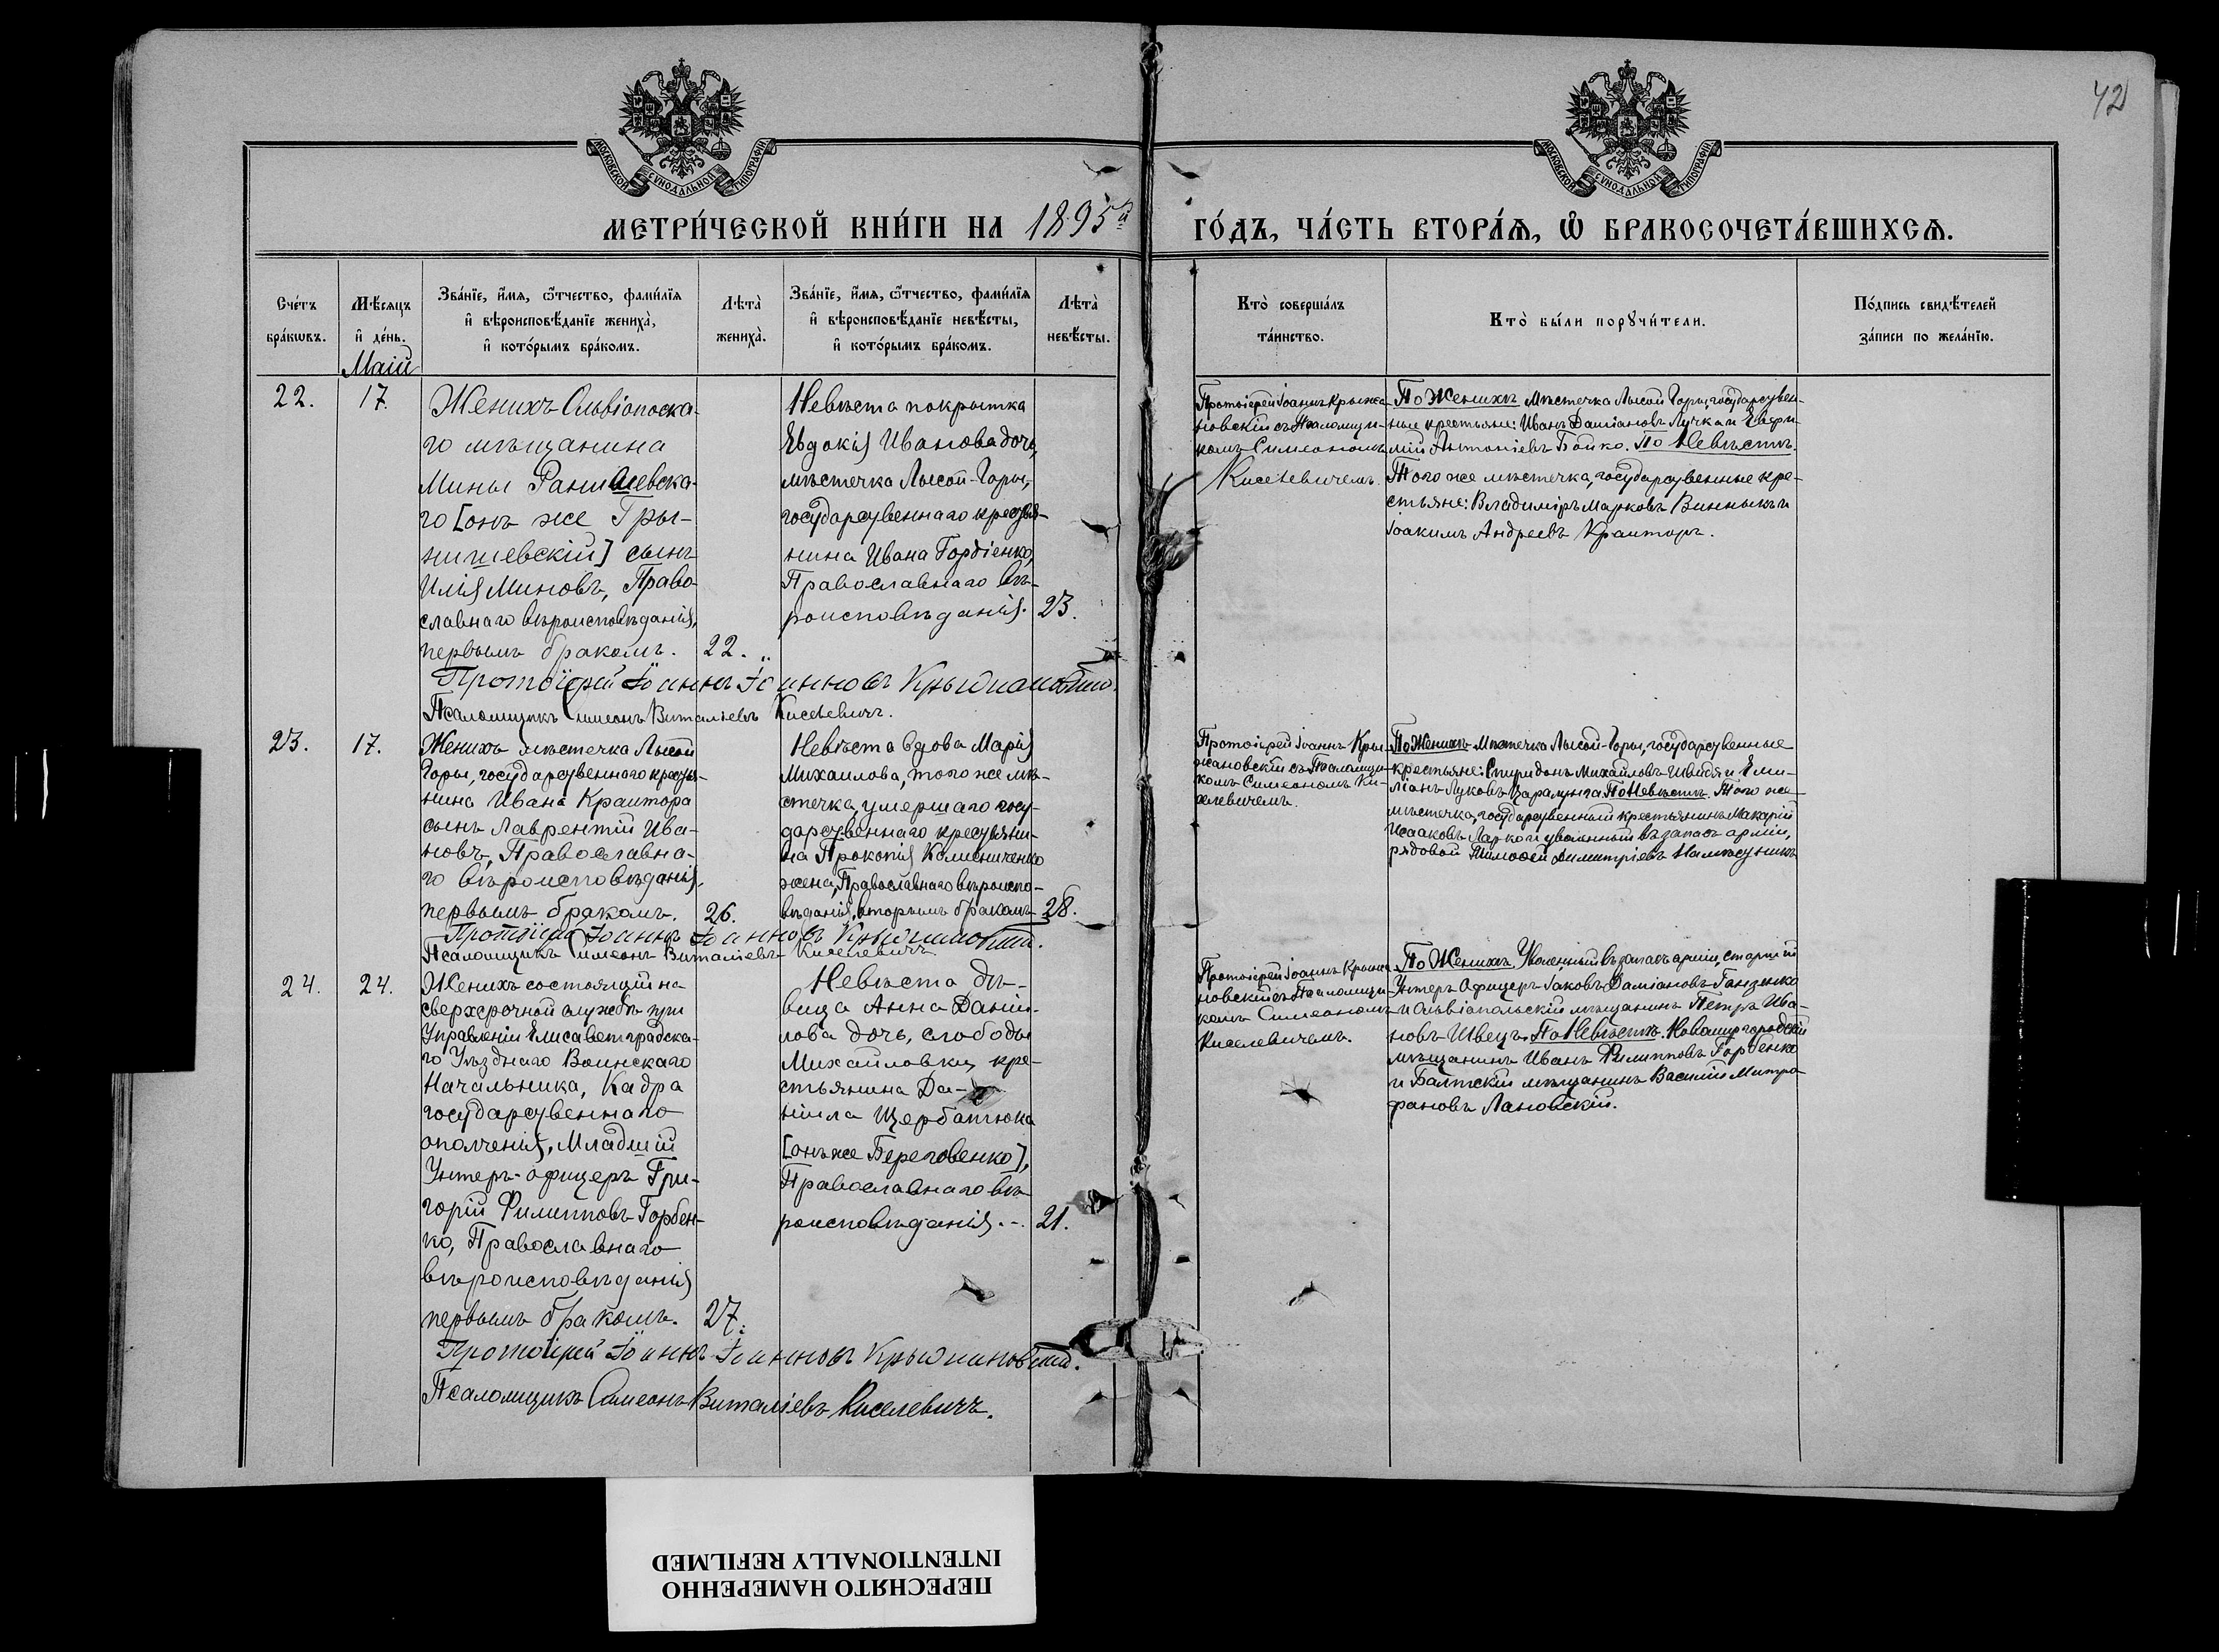 42
МОСКОВСКОЙ СУНОДАЛЬНОЙ ТИПОГРАФІИ
МОСКОВСКОЙ СУНОДАЛЬНОЙ ТИПОГРАФІИ
МЕТРИ́ЧЕСКОЙ КНИ́ГИ НА 1895й
ГО́ДЪ, ЧА́СТЬ ВТОРА́Я, Ѡ БРАКОСОЧЕТА́ВШИХСЯ.
Сче́тъ
бра́кѡвъ.
Мѣ́сяцъ
и҆ де́нь.
Маій
Зва́нїе, и҆́мя, ѻ҆́тчество, фами́лїя
и҆ вѣроисповѣ́данїе жениха̀,
и҆ кото́рымъ бра́комъ.
Лѣта̀
жениха̀.
Зва́нїе, и҆́мя, ѻ҆́тчество, фами́лїя
и҆ вѣроисповѣ́данїе невѣ́сты,
и҆ кото́рымъ бра́комъ.
Лѣта̀
невѣ́сты.
Кто̀ соверша́лъ
та́инство.
Кто̀ бы́ли порꙋчи́тели.
По́дпись свидѣ́телей
за́писи по жела́нїю.
22.
17.
Женихъ Ольвіопоска-
го мѣщанина
Мины Ранишевска-
го [онъ же Гры-
нишевскій] сынъ
Илія Миновъ, Право-
славнаго вѣроисповѣданія,
первымъ бракомъ.
22.
Невѣста покрытка
Евдокія Иванова дочь,
мѣстечка Лысой-Горы,
государственнаго крестья-
нина Ивана Гордіенко,
Православнаго вѣ-
роисповѣданія.
23.
Протоіерей Іоаннъ Крыжа-
новскій съ Псаломщи-
комъ Симеономъ
Киселевичемъ.
По Женихѣ Мѣстечка Лысой Горы, государствен-
ные крестьяне: Иванъ Даміановъ Лучка и Евфи-
мій Антоніевъ Бойко. По Невѣстѣ.
Того же мѣстечка, государственные кре-
стьяне: Владиміръ Марковъ Винныкъ и
Іоакимъ Андреевъ Крапторъ.
Протоіерей Іоаннъ Іоанновъ Крыжановскій.
Псаломщикъ Симеонъ Виталіевъ Киселевичъ.
23.
17.
Женихъ мѣстечка Лысой
Горы, государственнаго крестья-
нина Ивана Краптора
сынъ Лаврентій Ива-
новъ, Православна-
го вѣроисповѣданія,
первымъ бракомъ.
26.
Невѣста вдова Марія
Михаилова, того же мѣ-
стечка умершаго госу-
дарственнаго крестьяни-
на Прокопія Колисниченко
жена, Православнаго вѣроиспо-
вѣданія, вторымъ бракомъ
28.
Протоіерей Іоаннъ Кры-
жановскій съ Псаломщи-
комъ Симеономъ Ки-
селевичемъ.
По Женихѣ Мѣстечка Лысой-Горы, государственные
крестьяне: Спиридонъ Михайловъ Швидя и Еми-
ліанъ Луковъ Царалунга По Невѣстѣ. Того же
мѣстечка, государственный крестьянинъ Макарій
Исааковъ Ларко и уволенный въ запасъ арміи,
рядовой Тимоѳей Димитріевъ
Протоіерей Іоаннъ Іоанновъ Крыжановскій.
Псаломщикъ Симеонъ Виталіевъ Киселевичъ
24.
24.
Женихъ состоящій на
сверхсрочной службѣ при
Управленіи Елисаветградска-
го Уѣзднаго Воинскаго
Начальника, Кадра
государственнаго
ополченія, Младшій
Унтеръ-офицеръ Гри-
горій Филипповъ Горбен-
ко, Православнаго
вѣроисповѣданія
первымъ бракомъ.
27.
Невѣста дѣ-
вица Анна Даніи-
лова дочь, слободы
Михайловки, кре-
стьянина Да-
ніила Щербатюка
[онъ же Береговенко],
Православнаго вѣ-
роисповѣданія.-.
21.
Протоіерей Іоаннъ Крыжа-
новскій съ Псаломщи-
комъ Симеономъ
Киселевичемъ.
По Женихѣ Уволенный въ запасъ арміи, старшій
Унтеръ Офицеръ Іаковъ Даміановъ Ганзенко
и Ольвіопольскій мѣщанинъ Петръ Ива-
новъ Швецъ. По Невѣстѣ. Новомиргородскій
мѣщанинъ Иванъ Филипповъ Горбенко
и Балтскій мѣщанинъ Василій Митро-
фановъ Лановскій.
Протоіерей Іоаннъ Іоанновъ Крыжановскій.
Псаломщикъ Симеонъ Виталіевъ Киселевичъ.
ПЕРЕСНЯТО НАМЕРЕННО
INTENTIONALLY REFILMED